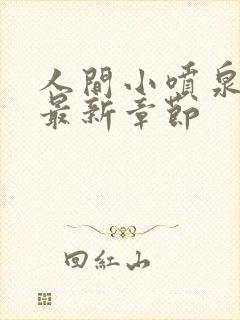 人間小噴泉
最新章節
回紅山